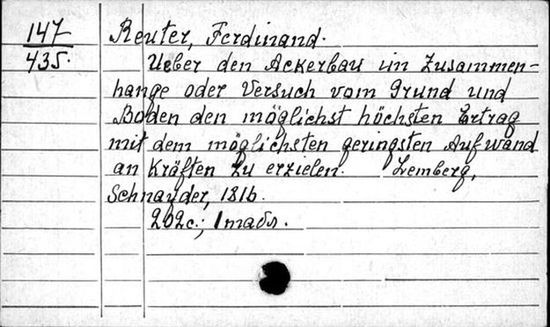 147
435.
Reuter, Ferdinand.
Ueber den Ackerbau im Zusammen-
hange oder Versuch vom Grund und
Boden den möglichst höchsten Ertrag
mit dem möglichsten geringsten Aufwand
an Kräften zu erzielen. Lemberg,
Schnayder, 1816.
202c.;